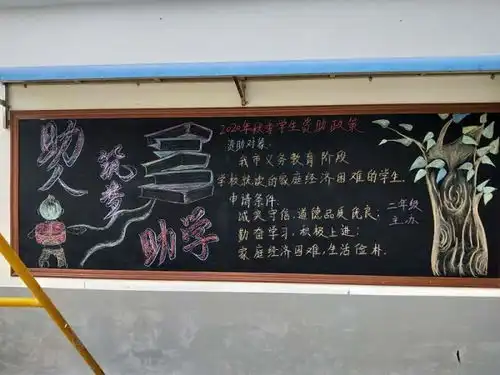 助人
筑梦
助学
2020年秋季学生资助政策
资助对象:
我市义务教育阶段
学校就读的家庭经济困难的学生.
申请条件
诚实守信,道德品质优良;
勤奋学习,积极上进;
家庭经济困难,生活俭朴.
二年级
主办